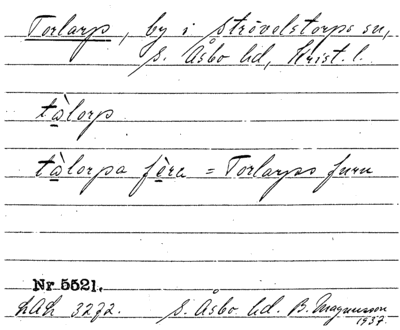 Torlarp, by i Strövelstorps sn,
S. Åsbo hd, Krist. l.
tàlorp
tàlorpa fèra = Torlarps fura
Nr. 5521.
LAL 3272. S. Åsbo hd. B. Magnusson
1937.